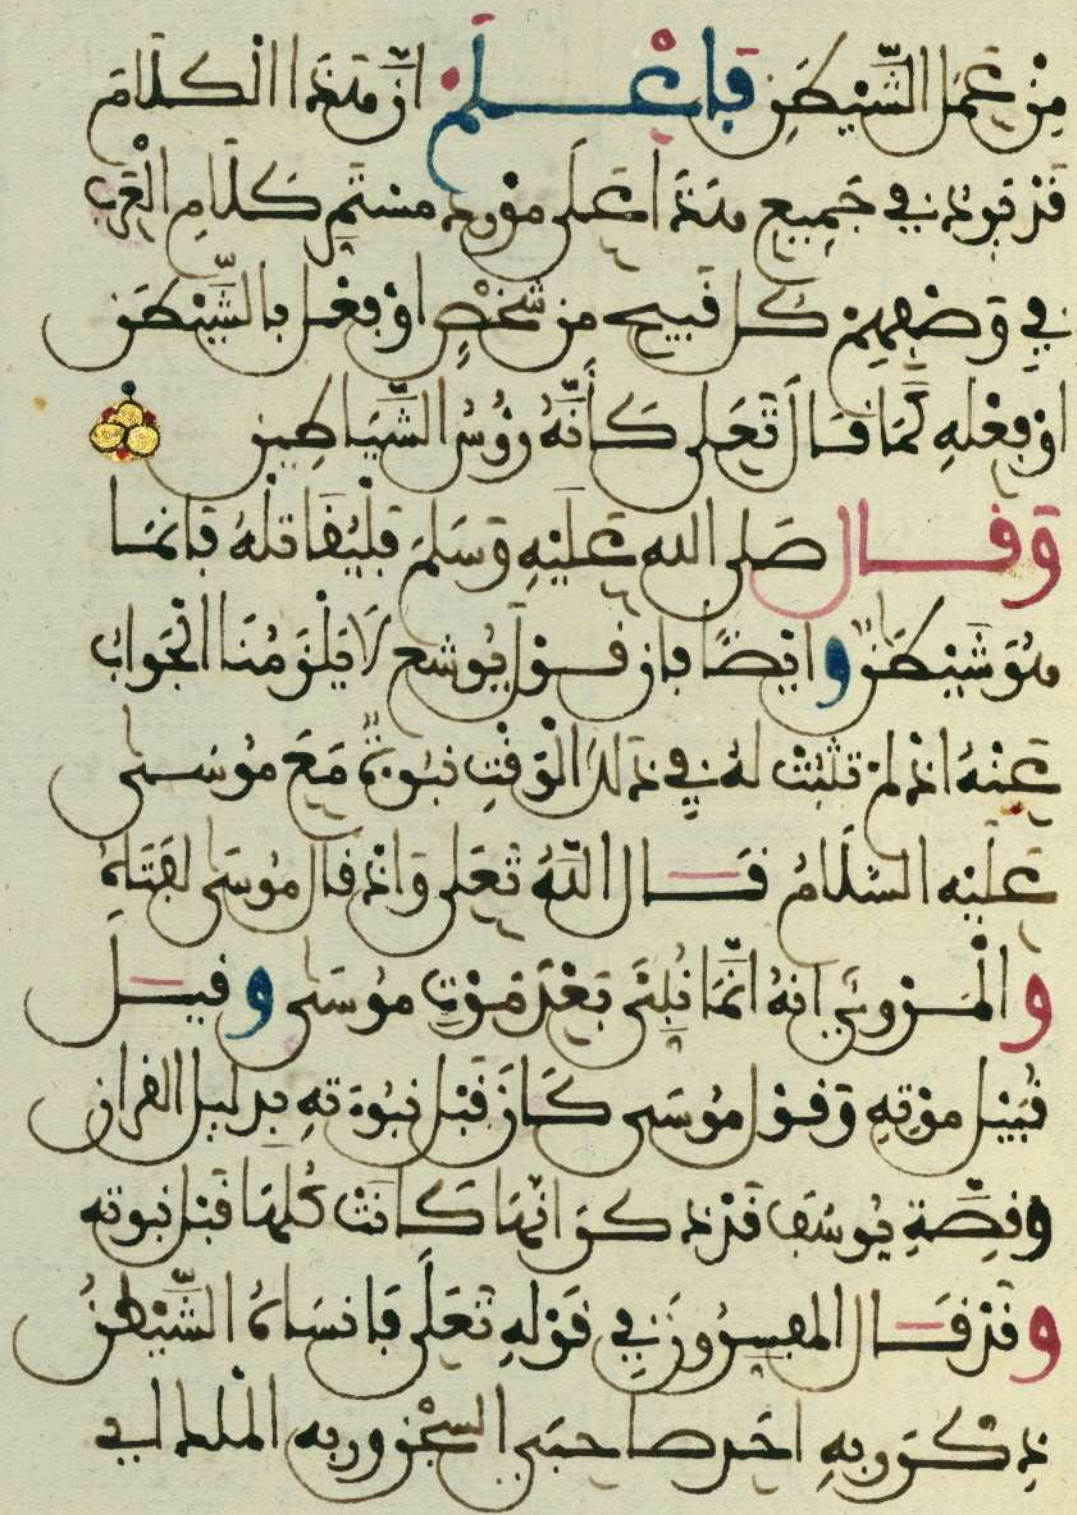 مِنْ عَمَلِ الشَّيْطَنِ فَاعْلَمْ أنَّ هَذَا الْكَلَامَ
قَدْ يَرِدُ فِي جَمِيعِ هَذَا عَلَى مَوْرِدِ مستَمِرِّ كَلَامِ الْعَرَبِ
فِي وَصْفِهِمْ كُلَّ قَبِيحٍ مِنْ شَخْصٍ أوْ فِعْلٍ بِالشَّيْطَنِ
اوْ فِعْلِهِ كَمَا قَالَ تَعَلى كَأَنَّهُ رُؤُسُ الشَّيَاطِينِ
وَقَال صَلى الله عَلَيْهِ وَسَلمَ فَلْيُقَاتلْهُ فَإنمَا
هُوَ شَيْطَنٌ وايْضًا فإن قَوْلَ يُوشع لَا يَلْزَمُنَا الْجَوابُ
عَنْهُ اذ لَمْ تَثْبُتْ لَهُ فِي ذلكَ الْوَقْتِ نبُوءَةٌ مَعَ مُوسَى
عَلَيْهِ السَّلَامُ قَال اللَّهُ تَعَلى وَاذْ قَال مُوسَى لِفَتَاهُ
والْمَرْوِيُّ انهُ انَّمَا نُبِّئَ بَعْدَ مَوْتِ مُوسَى وقيل
قُبَيْلَ مَوْتِهِ وَقَوْل مُوسَى كَانَ قَبْل نُبُوءَتهِ بدليل القرانِ
وقِصَّةِ يُوسُفَ قَدْ ذكرَ انَّهَا كَانَتْ كُلهَا قَبْل نبوته
وقَدْ قَال المفسِرُونَ فِي قَوْلِهِ تَعَلَى فَانسَاهُ الشَّيْطَنُ
ذِكْرَ رَبِهِ احَد صَاحِبَيِ السجْنِ وربه الْمَلك اي